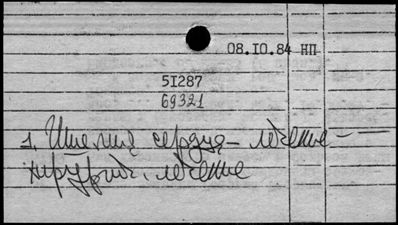 08.I0.84 НП
5I287
69321
1. Ишемия сердца – лечение –
хирургич. лечение